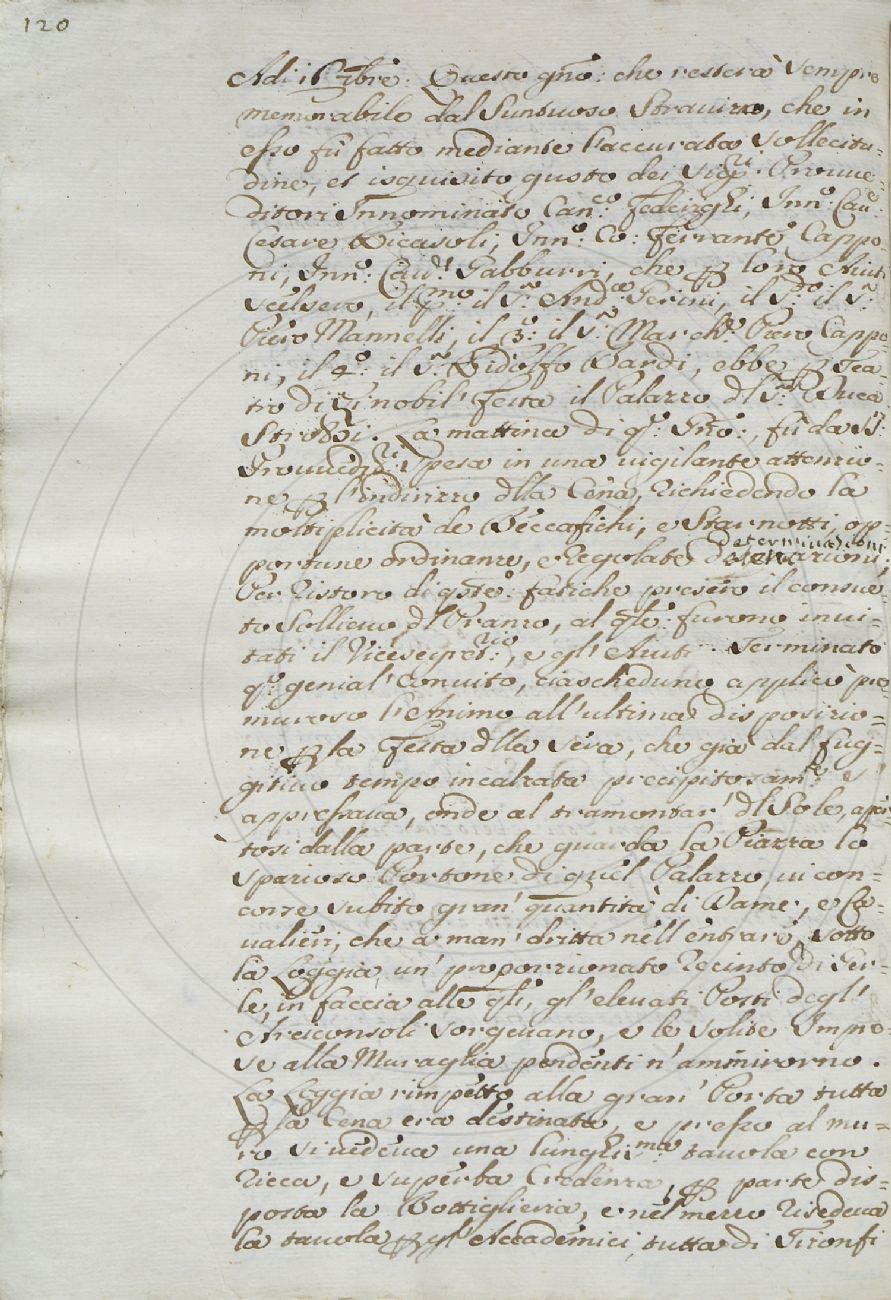 120
Adi 16 7bre. Questo gno: che resterà sempre
memorabile dal Suntuoso Stravizzo, che in
esso fù fatto mediante l'accurata sollecitu=
dine, et isquisito gusto dei Sigri: Provve=
ditori Innominato Canco: Federighi, Inno: Cave:
Cesare Ricasoli, Inno: Co: Ferrante Cappo=
ni, Inno: Cavr: Gabburri, che p loro Aiuti
scelsero, il pmo il Sr: Andea Gerini, il Sdo: il Sr:
Piero Mannelli, il 3o: il Sr: Marche: Piero Cappo=
ni, il 4o: il Sr: Ridolfo Bardi, ebbe p Tea=
tro di sì nobil' Festa il Palazzo dl Sr: Duca
Strozzi. La mattina di qo: Gno:, fù da SSri:
Provvedri: spesa in una vigilante attenzio=
ne p l'indirizzo dlla Cena, richiedendo la
moltiplicità de Beccafichi, e Starnotti, op=
portune ordinanze, e Regolate determinazioni:
Per Ristoro di qste: fatiche presero il consue=
to Sollievo dl Pranzo, al qle: furono invi=
tati il Vicesegretrio:, e gl' Aiuti. Terminato
qo: genial' Convito, ciascheduno applicò pre=
muroso l'Animo all'ultima disposizio=
ne p la Festa dlla sera, che già dal fug=
gitivo tempo incalzata precipitosamte: s'
appressava, onde al tramontar' dl Sole, aper=
tosi dalla parte, che guarda la Piazza lo
spazioso Portone di quel Palazzo, vi con=
corse subito gran' quantità di Dame, e Ca=
valieri, che a man' dritta nell'entrare, sotto
la Loggia un' proporzionato Recinto di Ser=
le, in faccia alle qli, gl'elevati Posti degl'
Arciconsoli sorgevano, e le solite Impre=
se alla Muraglia pendenti n'ammirorno.
La Loggia rimpetto alla gran' Porta tutta
p la Cena era destinata, e presso al mu=
ro si vedeva una lunghisma: tavola con
ricca, e superba Credenza, p parte dis=
posta la Bottiglieria, e nel mezzo risedeva
la tavola p gl' Accademici, tutta di Trionfi